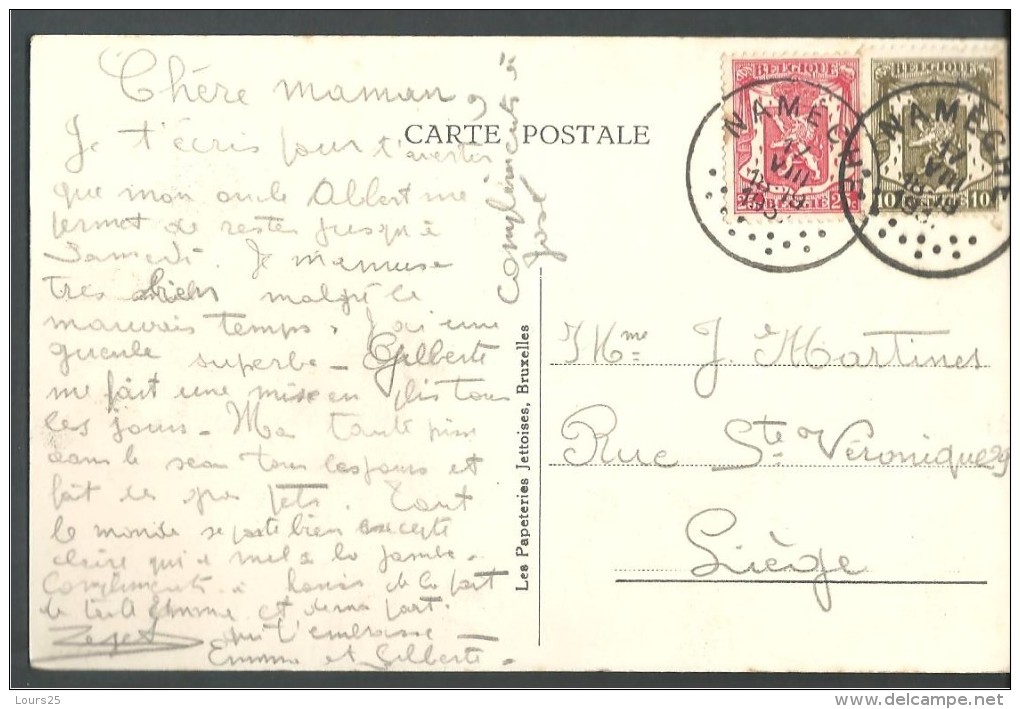 Chère maman,
Je t'écris pour t'avertir
que mon oncle Albert me
permet de rester jusqu'à
Samedi. Je m'amuse
très bien malgré le
mauvais temps. J'ai une
gueule superbe - Gilberte
me fait une mise en plis tous
les jours - Ma tante pisse
dans le seau tous les jours et
fait des gros pets. Tout
le monde se porte bien excepté
claire qui a mal à la jambe -
Compliments à de la part
de et de ma part.
qui t'embrasse
Emma et Gilberte -
Compliments à
José
CARTE POSTALE
Les Papeteries Jettoises, Bruxelles
BELGIQUE
BELGIE
25c
25c
BELGIQUE
10
10
NAMÈCHE
17
VIII
NAMÈCHE
17
VIII
Mme J. Martines
Rue Ste Véronique 29
Liège
Lours25
delcampe.net